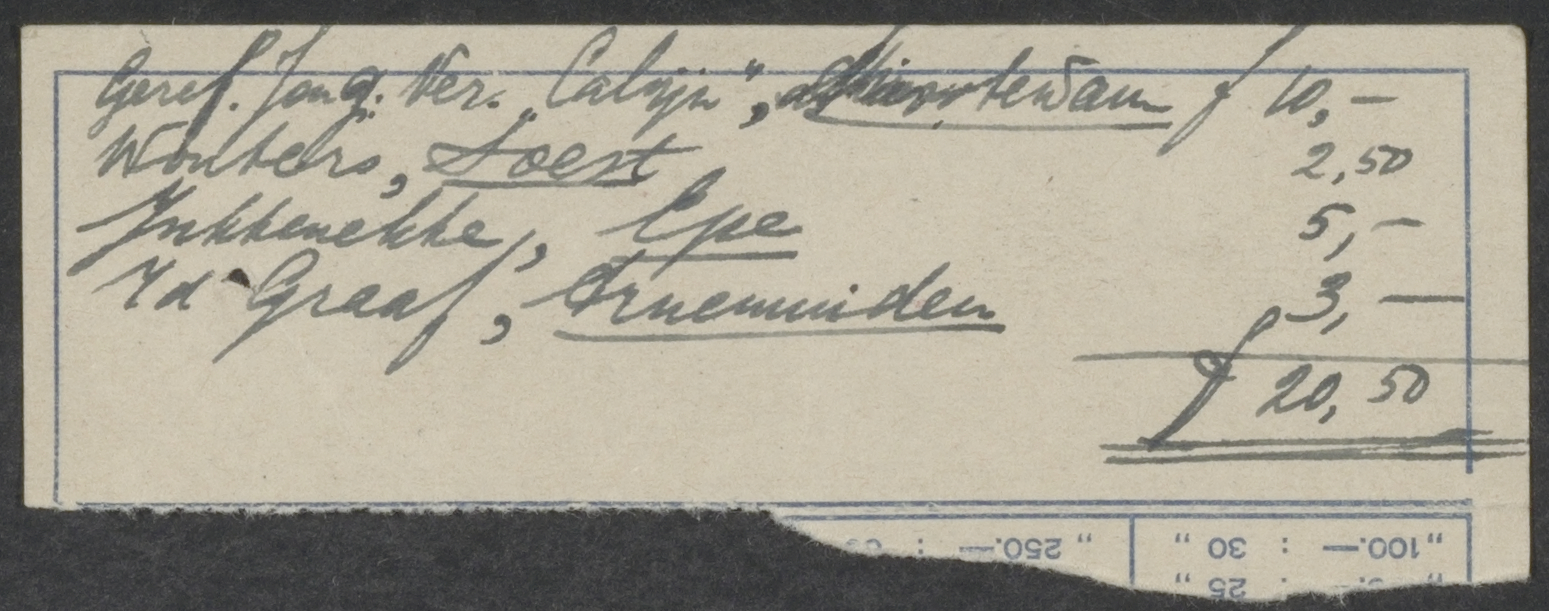 Geref. Jong. Ver. "Calvijn", f 10,—
Wouters, Soest 2,50
Jukkenekke, Epe 5,—
Id Graaf, Arnemuiden 3,—
f 20,50
" 100.— : 30 "
" 250.— :
: 25 "